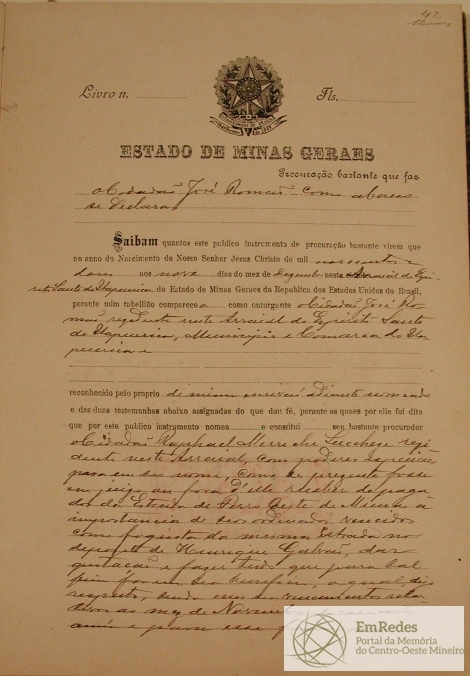 42
Livro n. Fls.
ESTADO DE MINAS GERAES
Procuração bastante que faz
o Cidadão José Romão como abaixo
se declara
Saibam quantos este publico instrumento de procuração bastante virem que
no anno do Nascimento de Nosso Senhor Jesus Christo de mil novecentos e
doze aos nove dias do mez de Dezembro neste Arraial de Espi-
rito Santo de Itapecerica do Estado de Minas Geraes da Republica dos Estados Unidos do Brasil,
perante mim tabellião comparece o como outorgante o Cidadão José Ro-
mão residente neste Arraial do Espirito Santo
de Itapecerica, Municipio e Comarca do Ita-
pecerica e
reconhecido pelo proprio de mim escrivão adiante nomeado
e das duas testemunhas abaixo assignadas do que dou fé, perante as quaes por elle foi dito
que por este publico instrumento nomea e constitui seu bastante procurador
o Cidadão Raphael Lucchese resi-
dente neste Arraial, com poderes especiaes
para em seu nome, como se presente fosse
em juizo ou fora d'elle receber do paga-
dor da Estrada de Ferro Oeste de Minas a
importancia de seus ordenados vencidos
como foguista da mesma Estrada no
deposito de Henrique Galvão, dar
quitação e fazer tudo que para tal
fim for em seu beneficio, a qual diz
respeito, sendo esses vencimentos rela-
tivos ao mez de Novembro
e para esse
EmRedes
Portal da Memória
do Centro-Oeste Mineiro